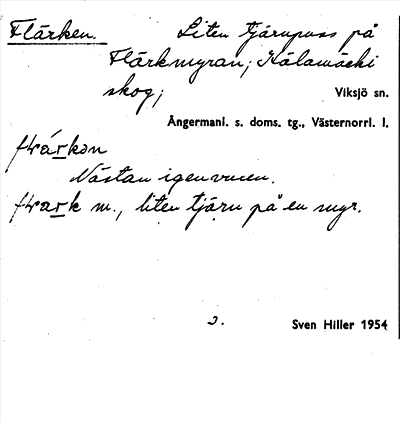 Flärken. Liten tjärnpuss på
Flärkmyran; Kälamäcki
skog; Viksjö sn.
Ångermanl. s. doms. tg., Västernorrl. l.
Nästan igenvuxen.
m., liten tjärn på en myr.
Sven Hiller 1954